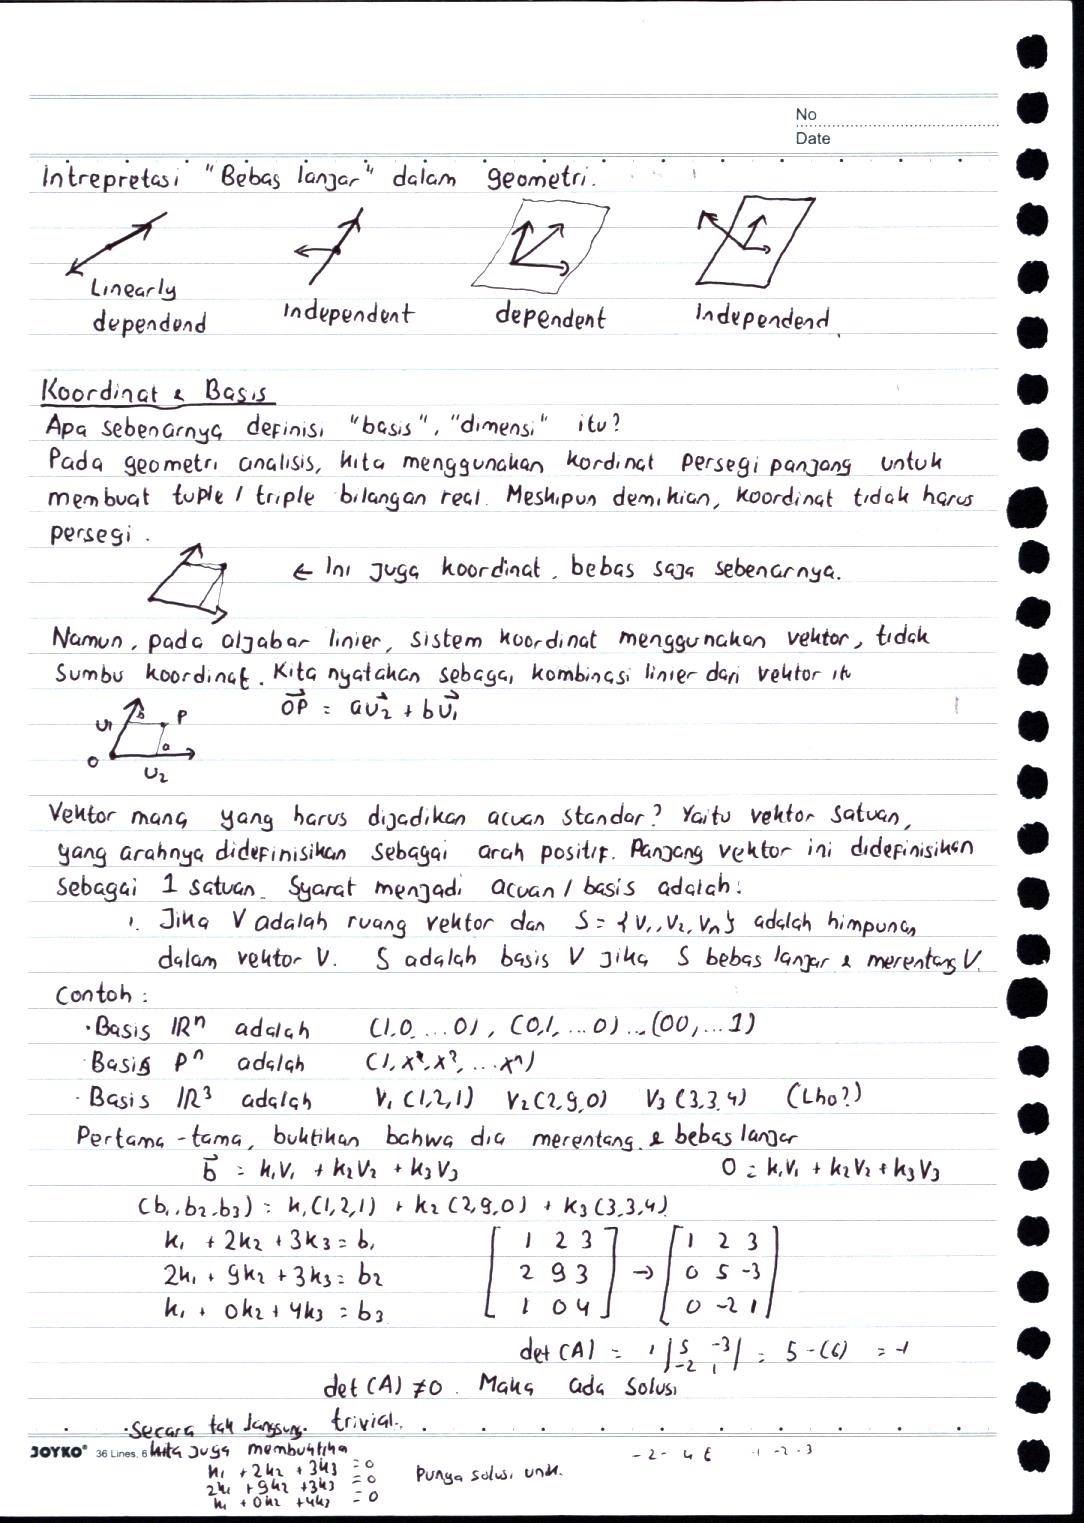 No
Date
Intrepretasi "Bebas lanjar" dalam geometri.
Linearly
dependend
Independent
dependent
Independend
Koordinat & Basis
Apa sebenarnya definisi "basis", "dimensi" itu?
Pada geometri analisis, kita menggunakan kordinat persegi panjang untuk
membuat tuple / triple bilangan real. Meskipun demikian, koordinat tidak harus
persegi.
← Ini juga koordinat, bebas saja sebenarnya.
Namun, pada aljabar linier, sistem koordinat menggunakan vektor, tidak
sumbu koordinat. Kita nyatakan sebagai kombinasi linier dari vektor itu
U₁ b P
a
O
U₂
OP⃗ = aU₂⃗ + bU₁⃗
Vektor mana yang harus dijadikan acuan standar? Yaitu vektor satuan,
yang arahnya didefinisikan sebagai arah positif. Panjang vektor ini didefinisikan
sebagai 1 satuan. Syarat menjadi acuan / basis adalah:
1. Jika V adalah ruang vektor dan S = {V₁, V₂, Vn} adalah himpunan
dalam vektor V. S adalah basis V jika S bebas lanjar & merentang V.
Contoh :
· Basis ℝⁿ adalah (1,0,...0), (0,1,...0) ... (00,...1)
· Basis Pⁿ adalah (1, x², x³, ... xⁿ)
· Basis ℝ³ adalah V₁ (1,2,1) V₂(2,9,0) V₃ (3,3,4) (Lho?)
Pertama-tama, buktikan bahwa dia merentang & bebas lanjar
b⃗ = k₁V₁ + k₂V₂ + k₃V₃ 0 = k₁V₁ + k₂V₂ + k₃V₃
(b₁, b₂, b₃) = k₁(1,2,1) + k₂(2,9,0) + k₃(3,3,4)
k₁ + 2k₂ + 3k₃ = b₁ [ 1 2 3 ] [ 1 2 3 ]
2k₁ + 9k₂ + 3k₃ = b₂ [ 2 9 3 ] → [ 0 5 -3 ]
k₁ + 0k₂ + 4k₃ = b₃ [ 1 0 4 ] [ 0 -2 1 ]
det (A) = 1 |5 -3| = 5 - (6) = -1
-2 1
det (A) ≠ 0. Maka ada solusi
trivial.
· Secara tak langsung
kita juga membuktika
JOYKO® 36 Lines, 6
k₁ + 2k₂ + 3k₃ = 0
2k₁ + 9k₂ + 3k₃ = 0
k₁ + 0k₂ + 4k₃ = 0
Punya solusi